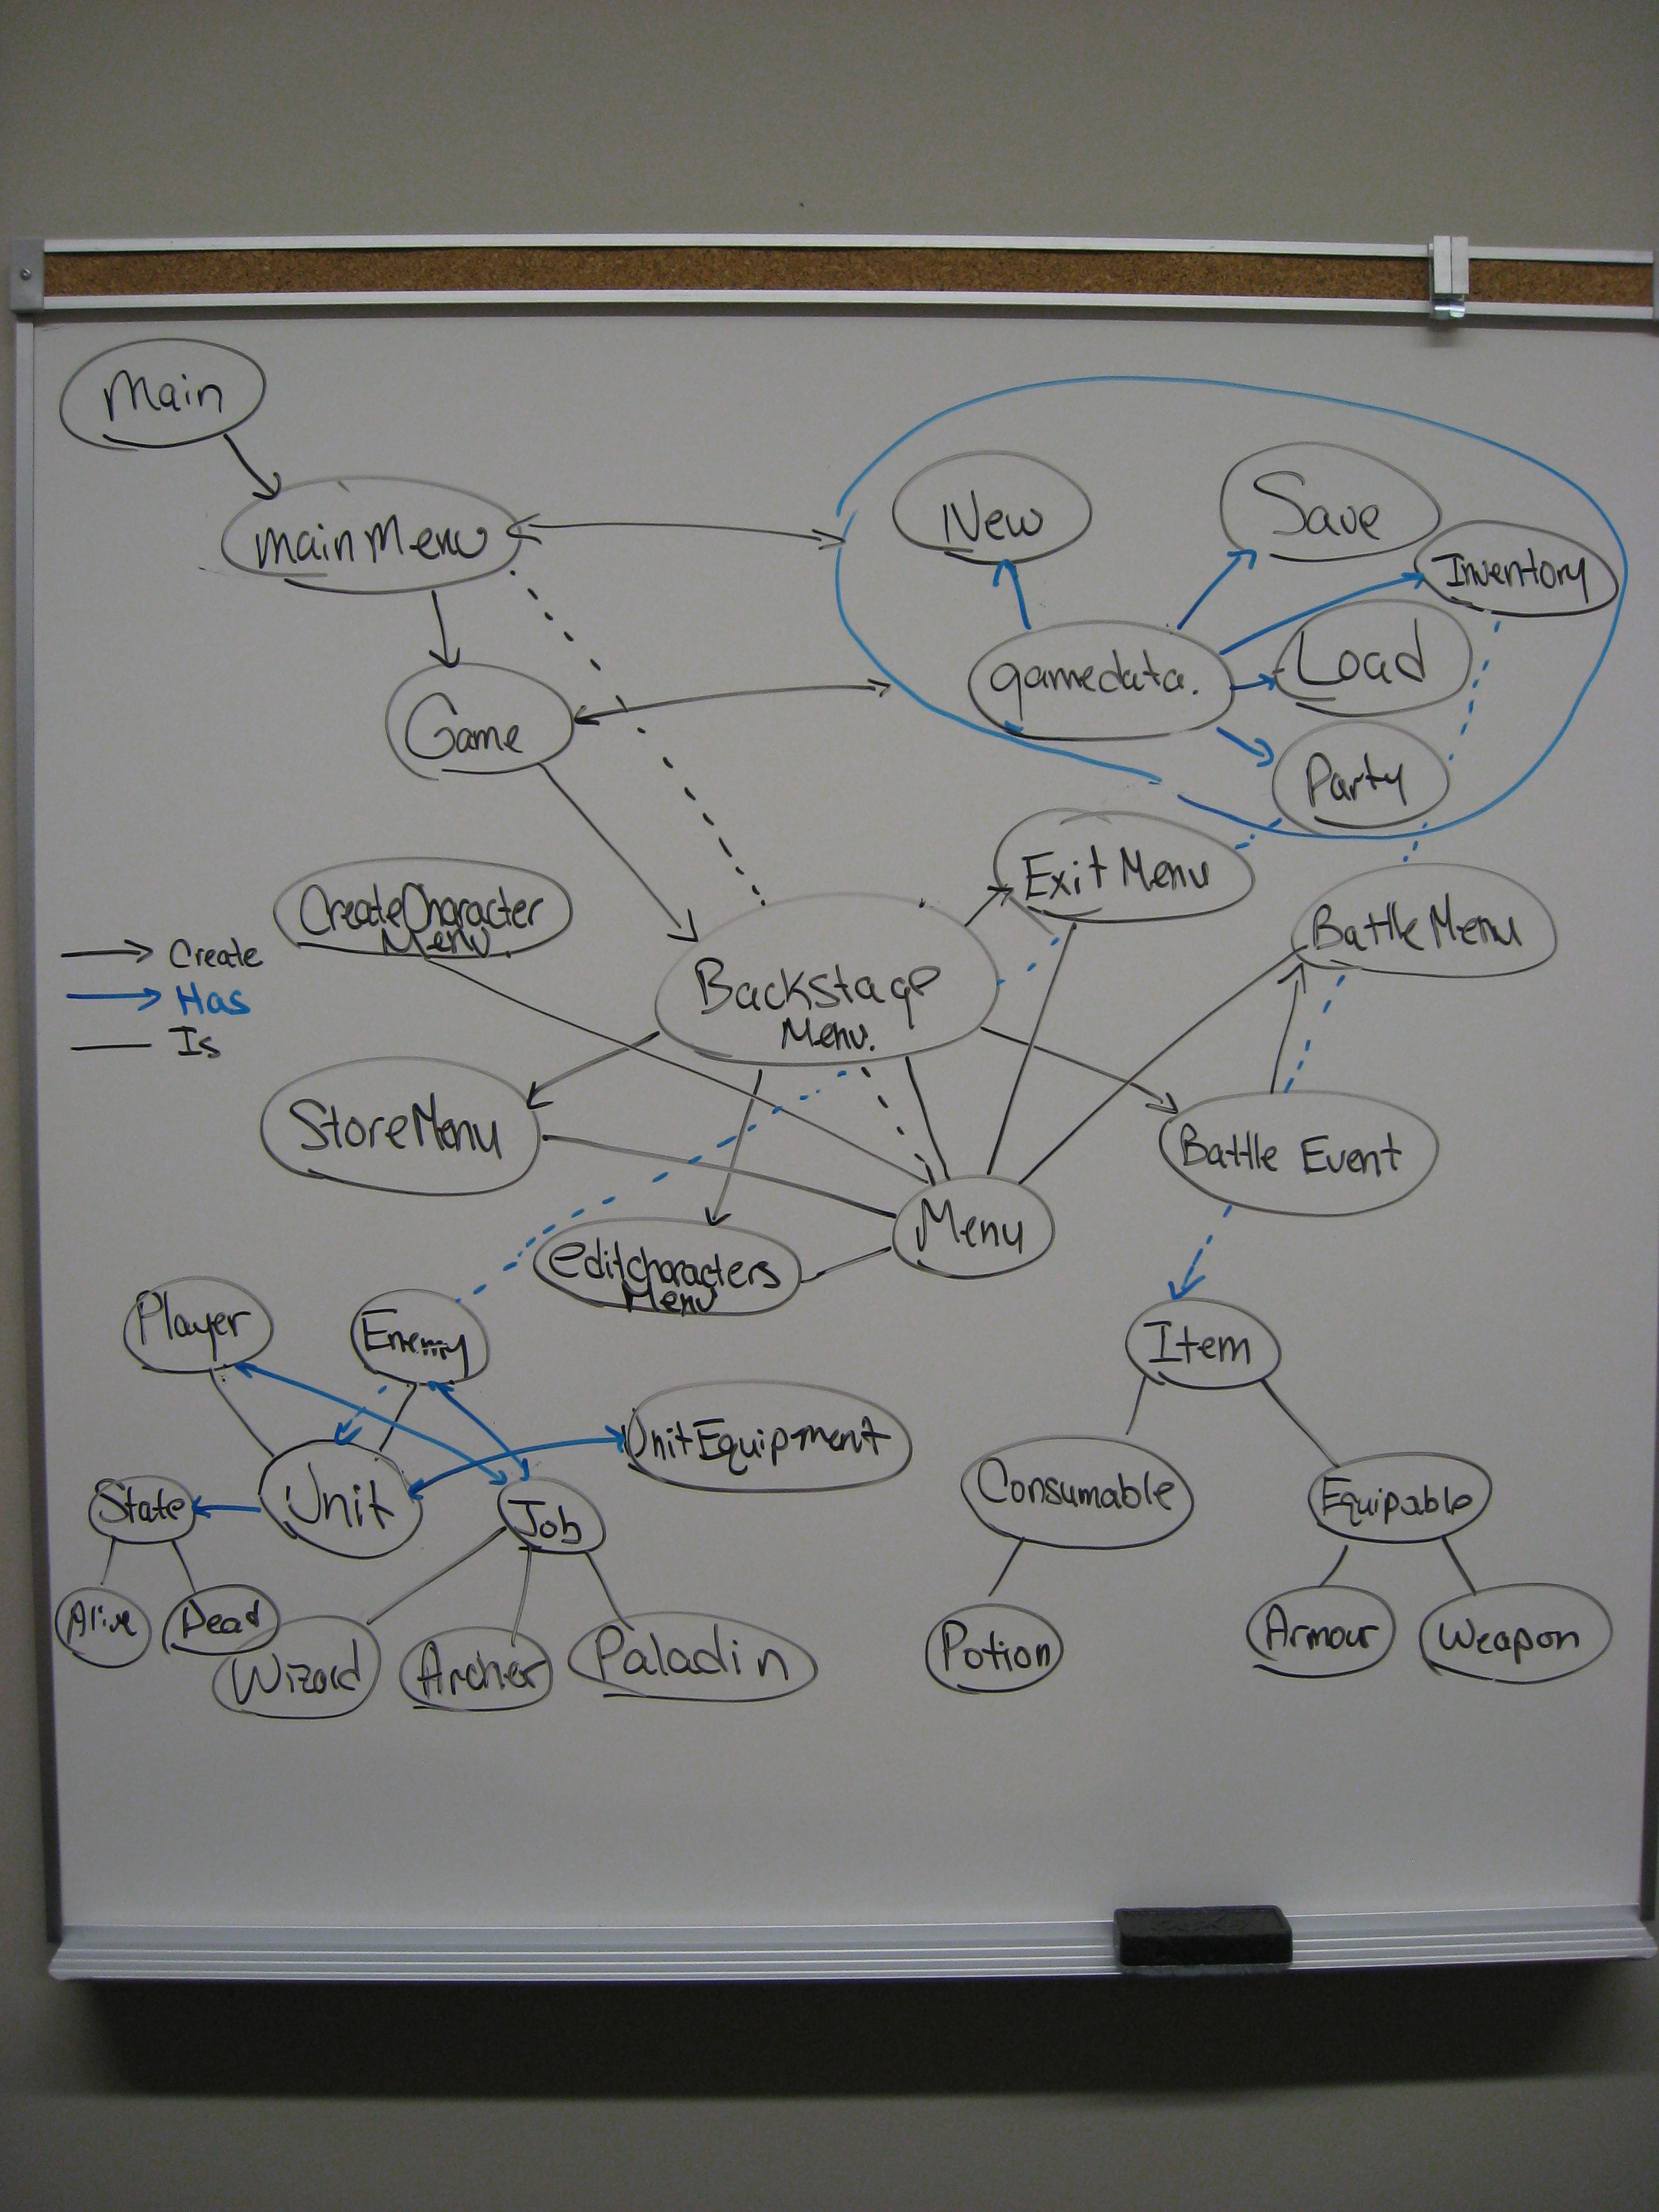 Main
mainMenu
New
Save
Inventory
gamedata.
Load
Game
Party
CreateCharacter
Menu
Exit Menu
Battle Menu
Create
Has
Is
Backstage
Menu.
StoreMenu
Battle Event
Menu
editcharacters
Menu
Player
Enemy
Item
UnitEquipment
State
Unit
Job
Consumable
Equipable
Alive
Dead
Wizard
Archer
Paladin
Potion
Armour
Weapon